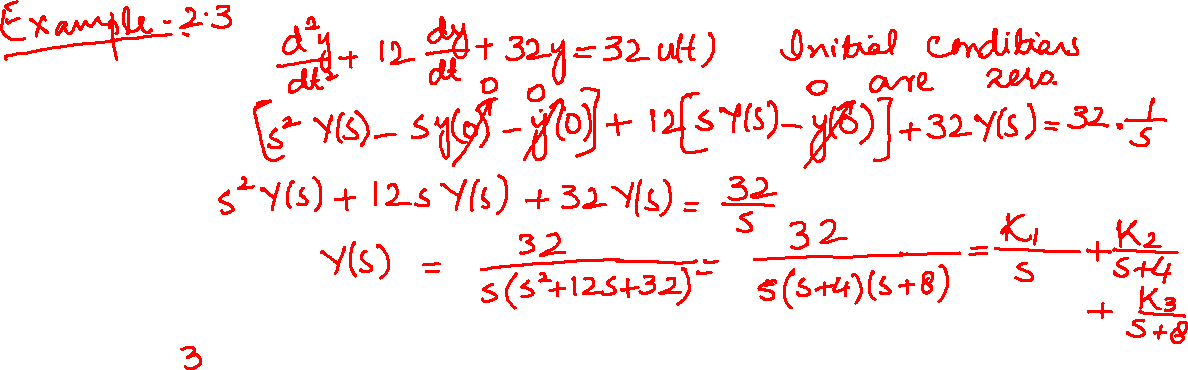 Example - 2.3
d²y/dt² + 12 dy/dt + 32y = 32 u(t) Initial conditions are zero.
[s² Y(s) - s y(0) 0 - ẏ(0) 0] + 12[s Y(s) - y(0) 0] + 32 Y(s) = 32 · 1/s
s² Y(s) + 12 s Y(s) + 32 Y(s) = 32/s
Y(s) = 32/(s(s²+12s+32)) = 32/(s(s+4)(s+8)) = K₁/s + K₂/(s+4)
+ K₃/(s+8)
3